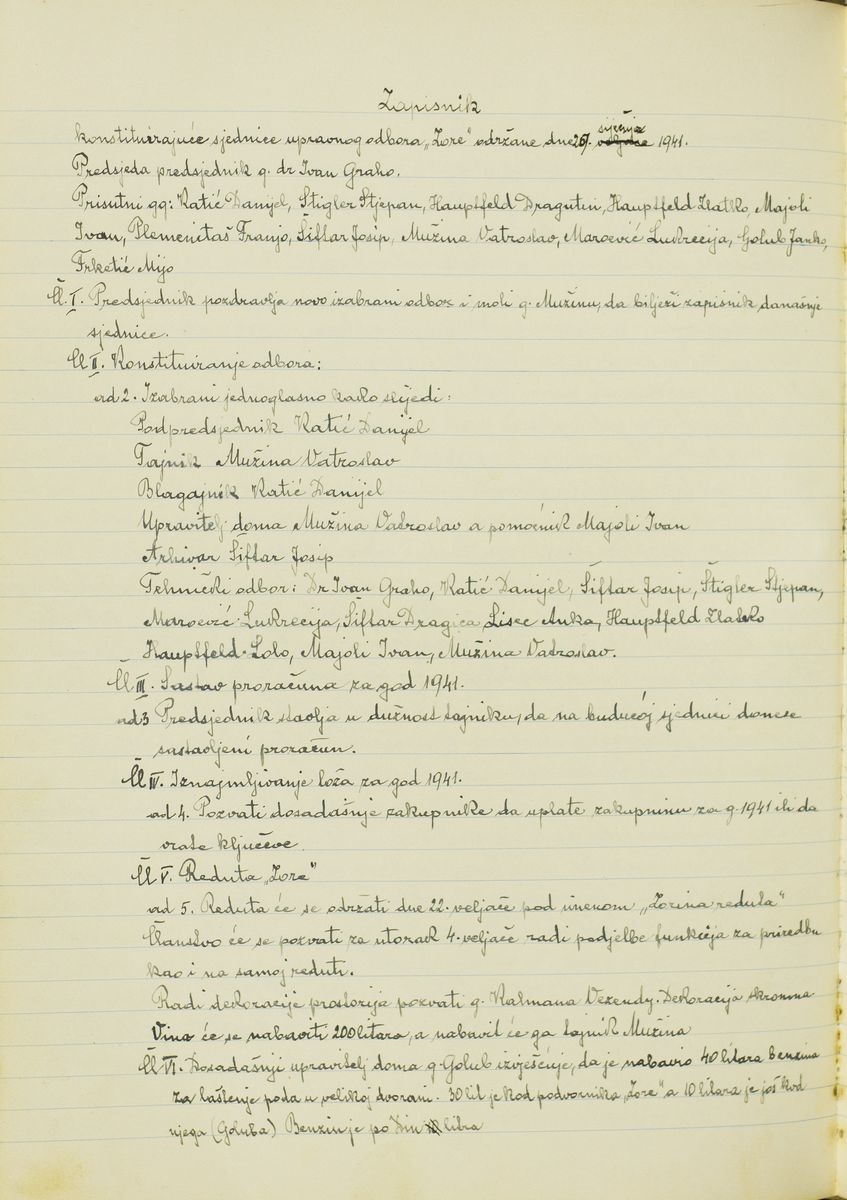 Zapisnik
konstituirajuće sjednice upravnog odbora „Zore" održane dne 26. siječnja 1941.
Predsjeda predsjednik g. dr Ivan Graho.
Prisutni gg: Katić Danijel, Štigler Stjepan, Hauptfeld Dragutin, Hauptfeld Zlatko, Majoli
Ivan, Plemenitaš Franjo, Šiftar Josip, Mužina Vatroslav, Maroević Lukrecija, Golub Janko,
Frketić Mijo
Čl. I. Predsjednik pozdravlja novo izabrani odbor i moli g. Mužinu, da bilježi zapisnik današnje
sjednice.
Čl II. Konstituiranje odbora:
ad 2. Izabrani jednoglasno kako slijedi:
Podpredsjednik Katić Danijel
Tajnik Mužina Vatroslav
Blagajnik Katić Danijel
Upravitelj doma Mužina Vatroslav a pomoćnik Majoli Ivan
Arhivar Šiftar Josip
Tehnički odbor: Dr Ivan Graho, Katić Danijel, Šiftar Josip, Štigler Stjepan,
Maroević Lukrecija, Šiftar Dragica, Lisec Anka, Hauptfeld Zlatko
Hauptfeld Lolo, Majoli Ivan, Mužina Vatroslav.
Čl III. Sastav proračuna za god 1941.
ad 3 Predsjednik stavlja u dužnost tajniku, da na budućoj sjednici donese
sastavljeni proračun.
Čl IV. Iznajmljivanje loža za god 1941.
ad 4. Pozvati dosadašnje zakupnike da uplate zakupninu za g. 1941 ili da
vrate ključeve.
Čl V. Reduta „Zore"
ad 5. Reduta će se održati dne 22. veljače pod imenom „Zorina reduta"
Članstvo će se pozvati za utorak 4. veljače radi podjelbe funkcija za priredbu
kao i na samoj reduti.
Radi dekoracije prostorija pozvati g. Kalmana Vezendy. Dekoracija skromna
Vina će se nabaviti 200 litara, a nabavit će ga tajnik Mužina
Čl VI. Dosadašnji upravitelj doma g. Golub izvješćuje, da je nabavio 40 litara benzina
za laštenje poda u velikoj dvorani. 30 lit je kod podvornika „Zore" a 10 litara je još kod
njega (Goluba) Benzin je po Din litra